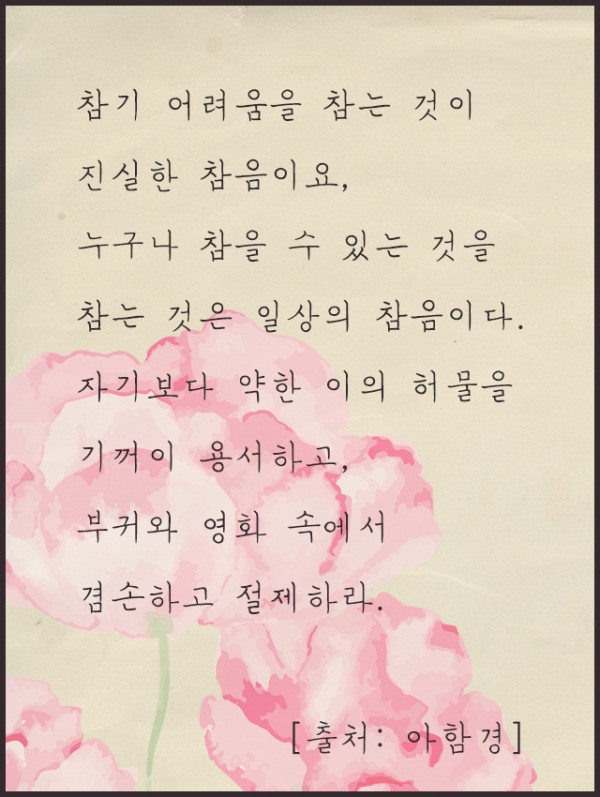 참기 어려움을 참는 것이
진실한 참음이요,
누구나 참을 수 있는 것을
참는 것은 일상의 참음이다.
자기보다 약한 이의 허물을
기꺼이 용서하고,
부귀와 영화 속에서
겸손하고 절제하라.
[출처: 아함경]